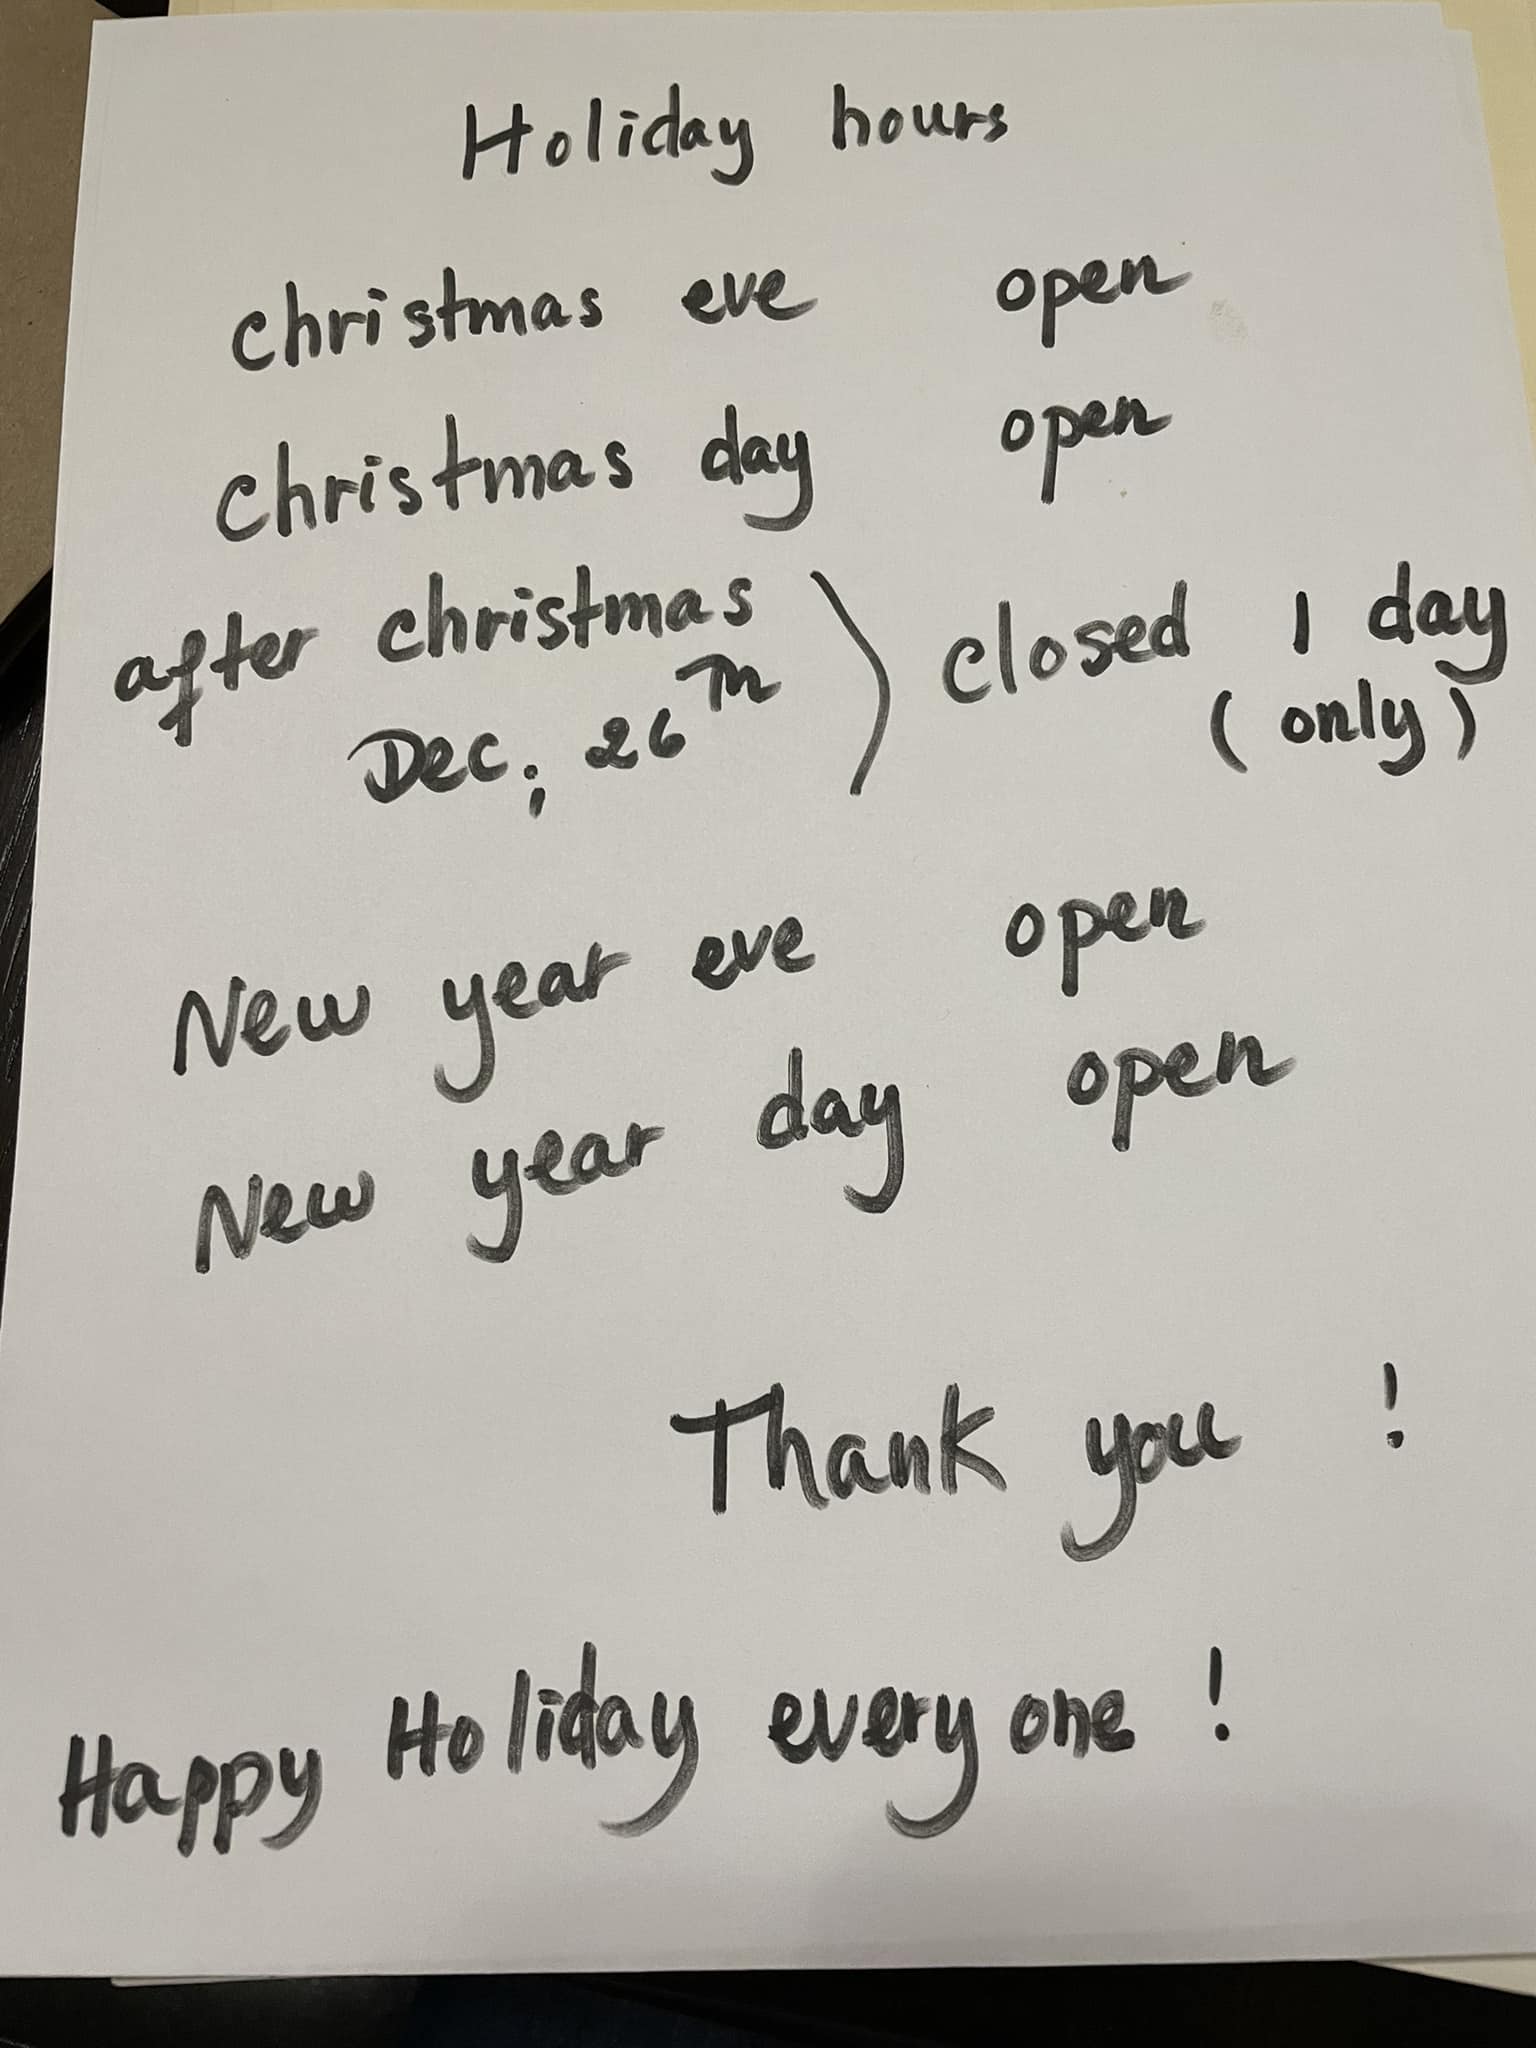 Holiday hours
christmas eve open
christmas day open
after christmas ) closed 1 day
Dec; 26th (only)
New year eve open
New year day open
Thank you !
Happy Holiday every one !